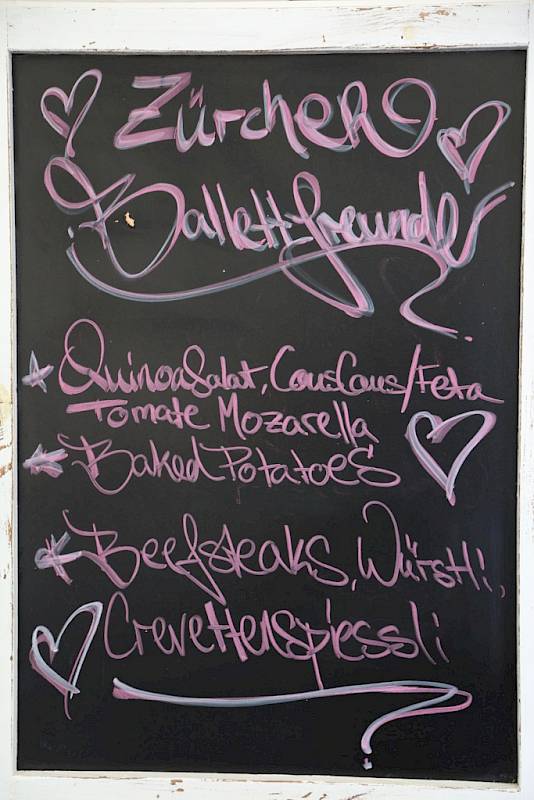 Zürcher
Ballettfreunde
Quinoasalat, CousCous/Feta
Tomate Mozarella
Baked Potatoes
Beefsteaks, Würstli,
Crevettenspiessli